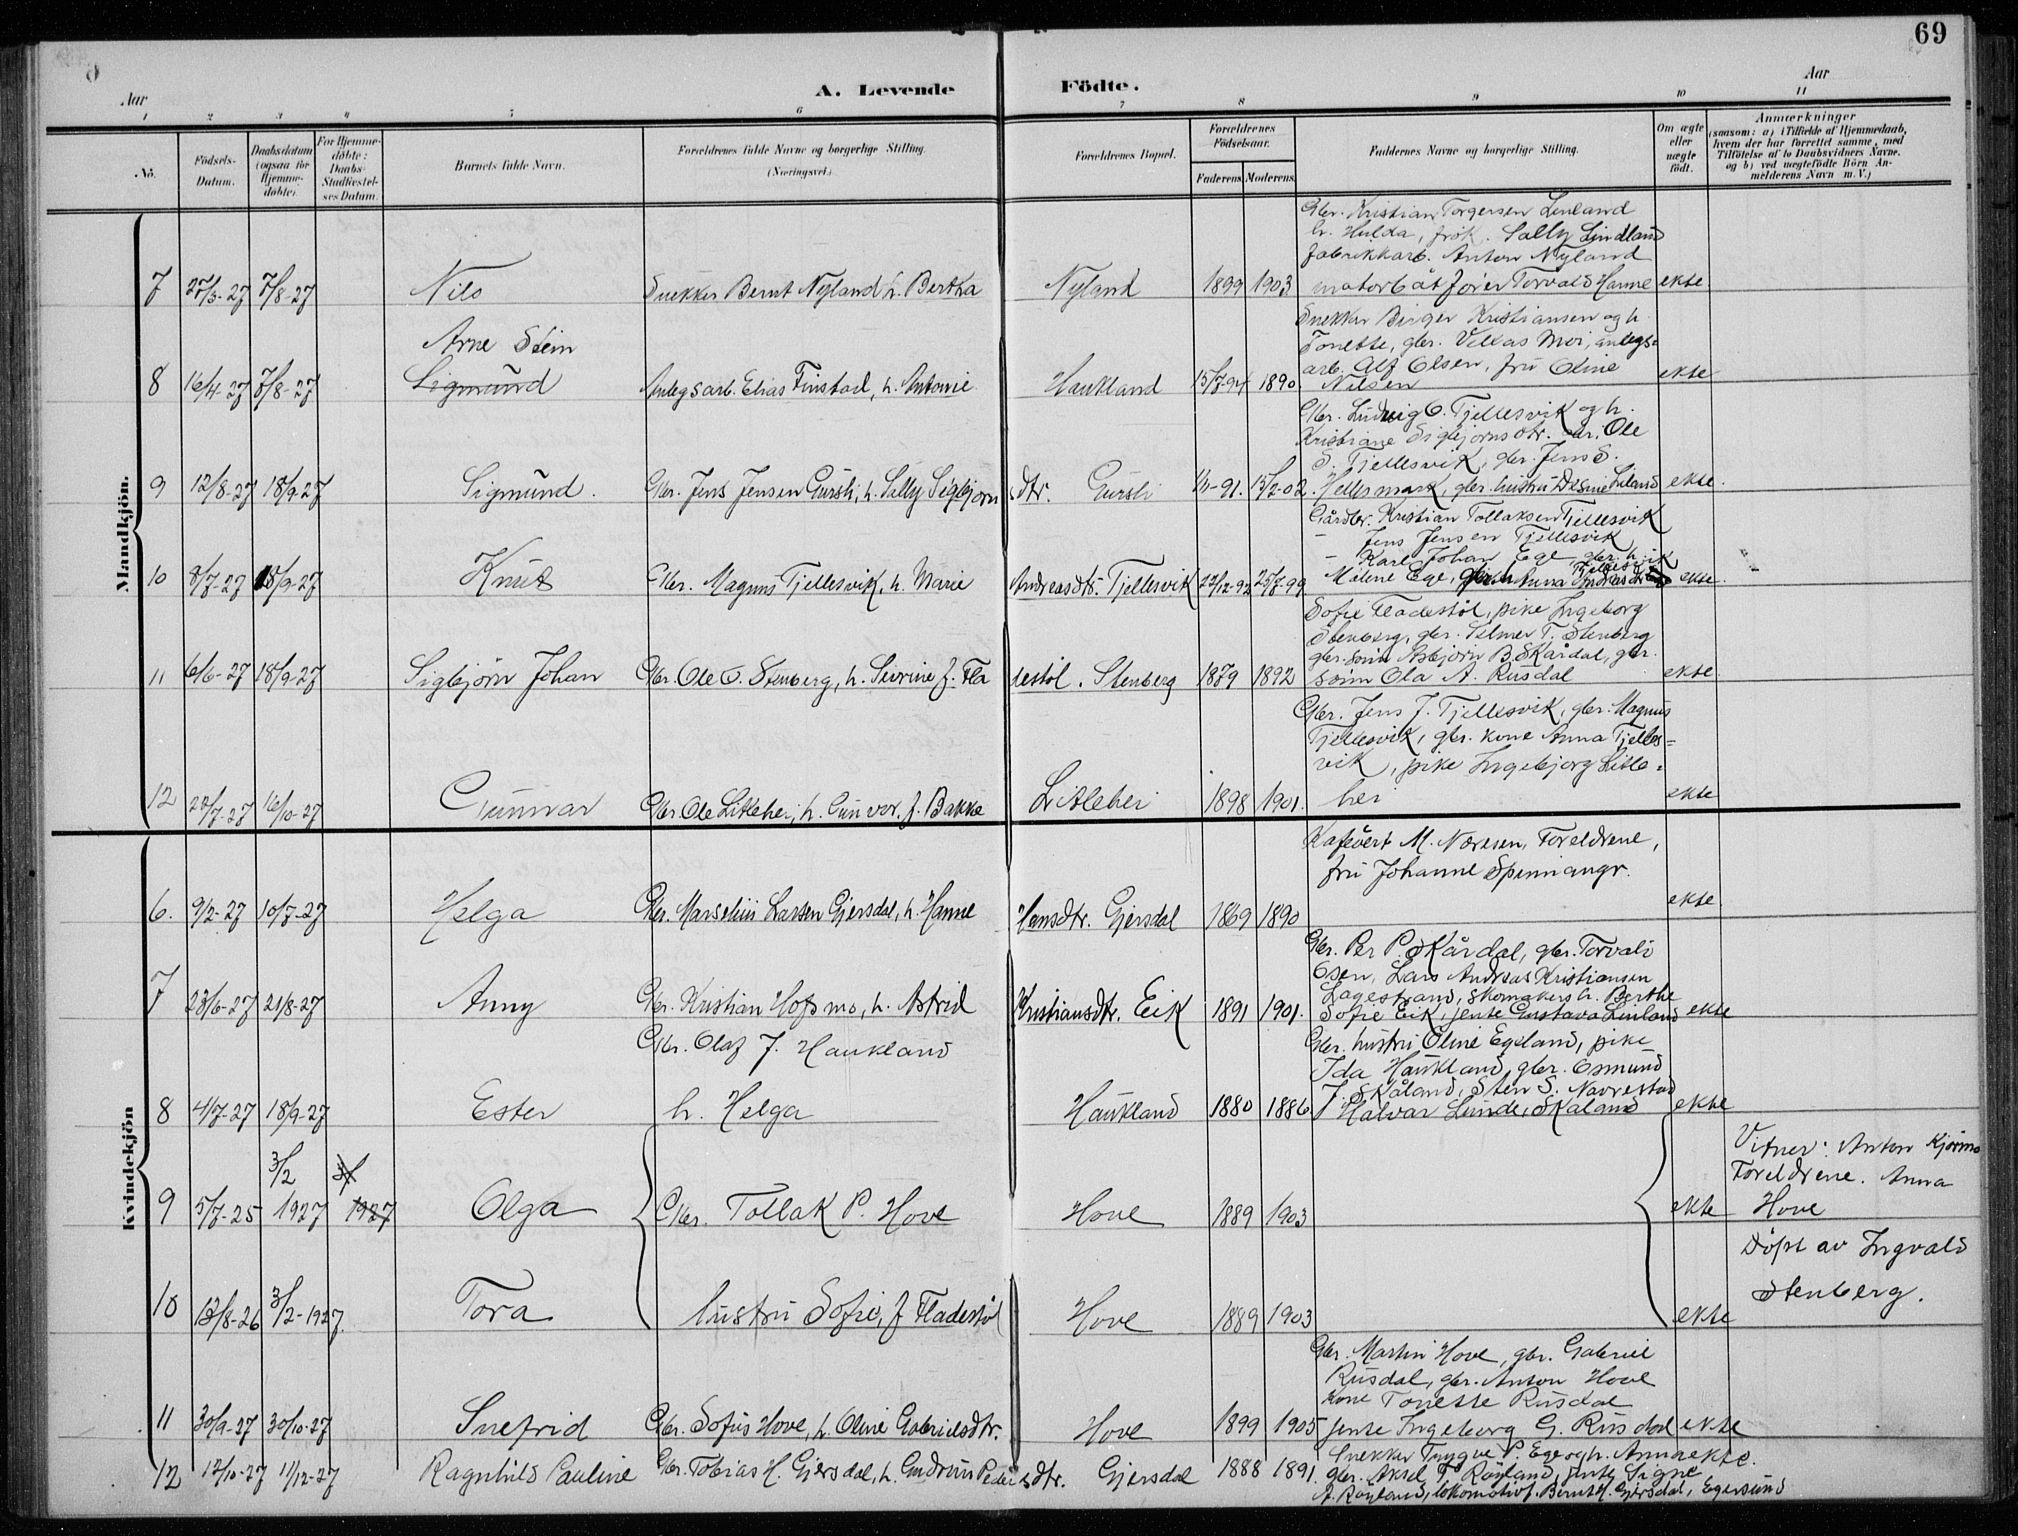 69
Aar
A. Levende Födte.
Aar
1 2 3 4 5 6 7 8 9 10 11
No.
Födsels-Datum.
Daabsdatum (ogsaa for Hjemme-döbte)
For Hjemme-döbte: Daabs-Stadfæstel-ses Datum.
Barnets fulde Navn.
Forældrenes fulde Navne og borgerlige Stilling. (Næringsvei.)
Forældrenes Bopæl.
Forældrenes Födselsaar.
Faderens Moderens
Faddernes Navne og borgerlige Stilling.
Om ægte eller uægte födt.
Anmærkninger
(saasom: a) i Tilfælde af Hjemmedaab, hvem der har forrettet samme, med Tilföielse af to Daabsvidners Navne. og b) ved uægtefödte Börn Anmelderens Navn m. V.)
Mandkjön.
Gbr. Kristian Torgersen Linland
h. Hulda, frök. Sally Lindland
fabrikkarb. Anton Nyland
7 27/3-27 7/8-27 Nils Snekker Bernt Nyland h. Bertha Nyland 1899 1903 motorbåtförer Torvald Hanne ekte
Snekker Birger Kristiansen og h.
Arne Stein Tonette, gbr. Vellas Moi, anlegs-
arb. Alf Olsen, fru Oline
8 16/4-27 7/8-27 Sigmund Anlegsarb. Elias Finstad, h. Antonie Haukland 15/7-94 1890. Nilsen ekte
Gbr. Ludvig O. Tjellesvik og h.
Kristiane Sigbjörnsdtr. Gbr. Ole
S. Tjellesvik, gbr. Jens S.
9 12/8-27 18/9-27 Sigmund. Gbr. Jens Jensen Gursli, h. Sally Sigbjörnsdtr. Gursli 1/1-91. 15/2-02. Hellesmark, gbr. hustru Liland ekte.
Gårdbr. Kristian Tollaksen Tjellesvik
- Jens Jensen Tjellesvik
- Karl Johan Ege gbr. h.
10 8/7-27 18/9-27 Knut Gbr. Magnus Tjellesvik, h. Marie Andreasdtr. Tjellesvik 22/12-92 25/7-99 Malene Ege, Anna Tjellesvik ekte.
Sofie Fladestöl, pike Ingeborg
Stenberg, gbr. Selmer T. Stenberg
gbr. sönn Asbjörn B. Skårdal, gbr.
11 6/6-27 18/9-27 Sigbjörn Johan Gbr. Ole O. Stenberg, h. Sevrine f. Fladestöl. Stenberg 1879 1892 sönn Ola A. Rusdal ekte.
Gbr. Jens J. Tjellesvik, gbr. Magnus
Tjellesvik, gbr. kone Anna Tjelles=
vik, pike Ingebjorg Litle=
12 22/7-27 16/10-27 Gunnar Gbr. Ole Litlehei, h. Gunvor f. Bakke Litlehei 1898 1901. hei ekte
Kvindekjön
Kafévert M. Næresen, Foreldrene,
fru Johanne Spinnangr.
6. 9/2-27 10/7-27 Helga Gbr. Marselius Larsen Gjersdal, h. Hanne Hansdtr. Gjersdal 1869 1890 ekte.
Gbr. Per P. Skårdal, gbr. Torvald
Osen, Lars Andreas Kristiansen
Lagestrand, skomakers h. Berthe
7 23/6-27 21/8-27 Anny Gbr. Kristian Hofsmo, h. Astrid Kristiansdtr. Eik 1891 1901. Sofie Eik, jente Gustava Linland ekte
Gbr. Olaf J. Haukland Gbr. hustru Oline Egeland, pike
Ida Haukland, gbr. Osmund
J. Skåland, Sten S. Navrestad
8 4/7-27 18/9-27 Ester h. Helga Haukland 1880 1886 Halvar Lunde, Skaland ekte
9 5/7-25 3/2 1927 1927 Olga Gbr. Tollak P. Hove Hove 1889 1903 ekte
Vitner: Anton Kjörmo
Foreldrene. Anna
Hove
Döpt av Ingvald
Stenberg.
10 13/8-26 3/2-1927. Tora hustru Sofie, f Fladestöl Hove 1889 1903 ekte
Gbr. Martin Hove, gbr. Gabriel
Rusdal, gbr. Anton Hove
Kone Tonette Rusdal
11 30/9-27 30/10-27 Snefrid Gbr. Sofus Hove, h. Oline Gabrielsdtr. Hove 1899 1905 jente Ingeborg G. Rusdal ekte
Snekker Trygve P. Ege og h. Anna ekte.
12 12/10-27 11/12-27 Ragnhild Pauline Gbr. Tobias H. Gjersdal, h. Gudrun Pedersdtr. Gjersdal 1888 1891. gbr. Aksel T. Röyland, jente Signe
A. Röyland, lokomotivf. Bernt H. Gjersdal, Egersund